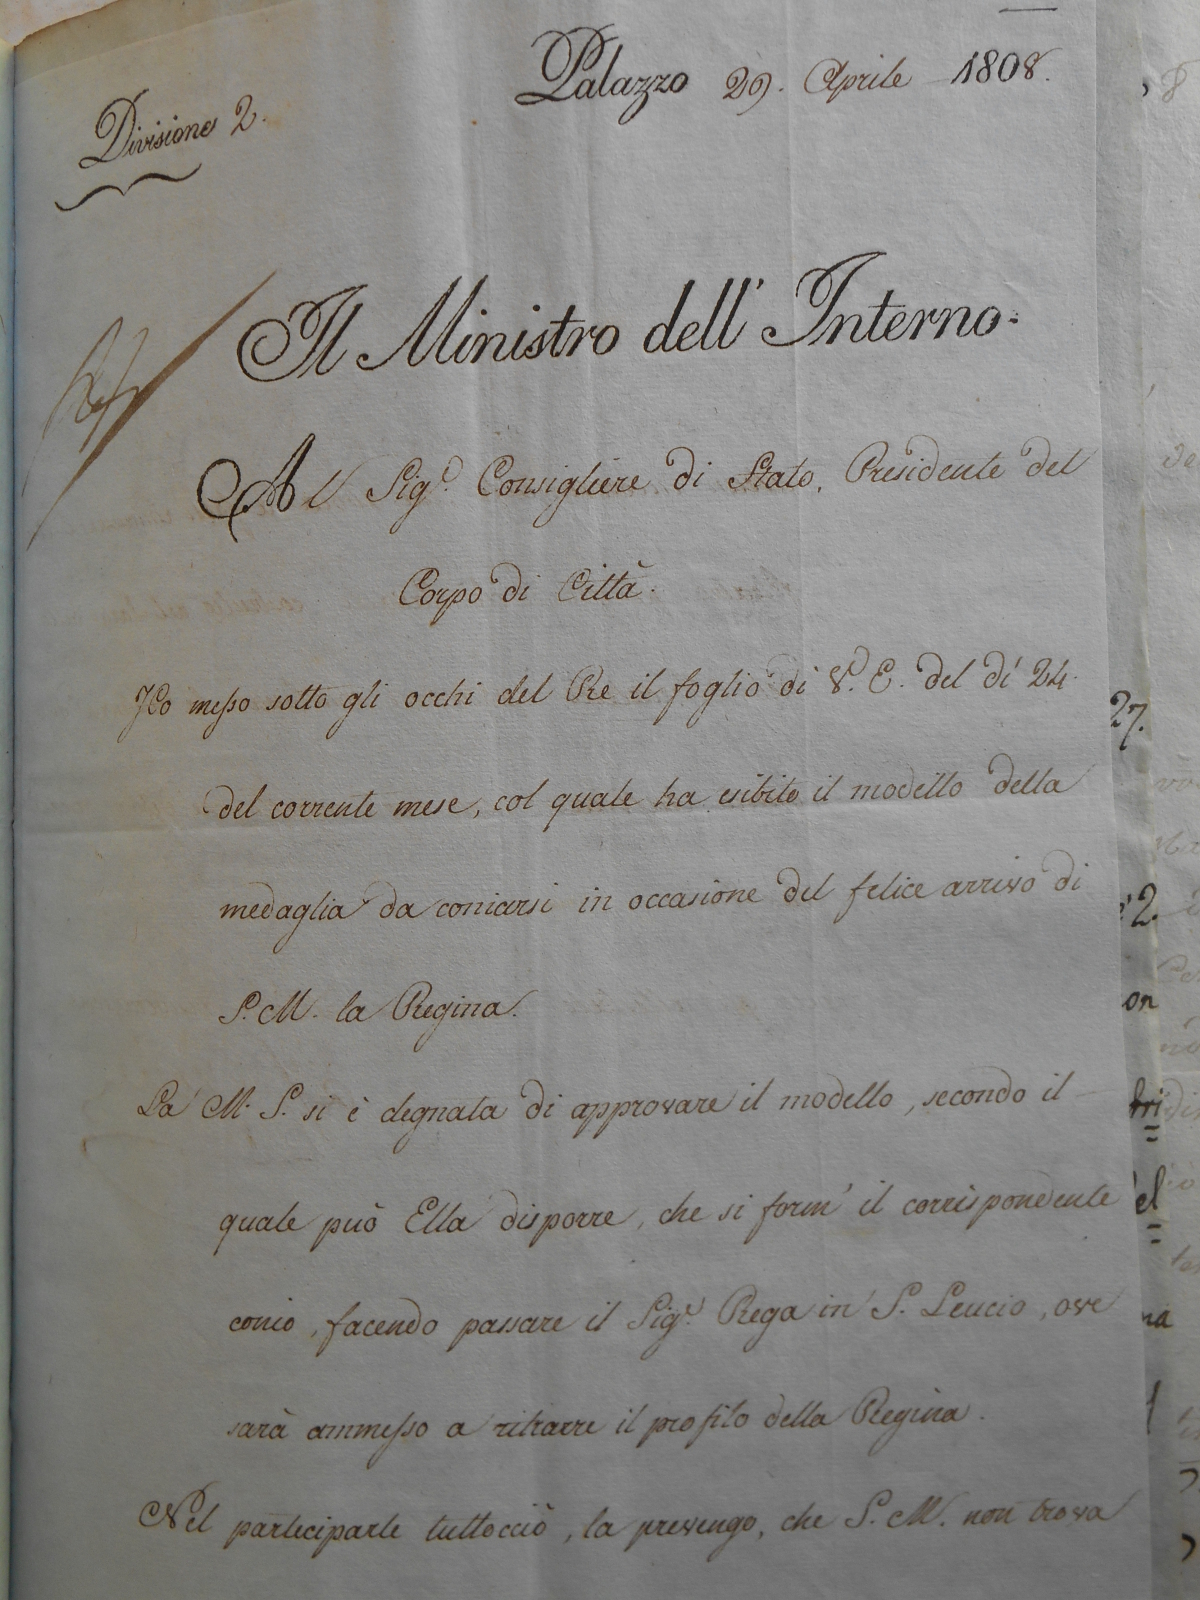 Palazzo 29. Aprile 1808.
Divisione 2.
Il Ministro dell' Interno.
Al Sig.r Consigliere di Stato, Presidente del
Corpo di Città.
Ho messo sotto gli occhi del Re il foglio di V. E. del dì 24.
del corrente mese, col quale ha esibito il modello della
medaglia da coniarsi in occasione del felice arrivo di
S. M. la Regina.
La M. S. si è degnata di approvare il modello, secondo il
quale può Ella disporre, che si form' il corrispondente
conio, facendo passare il Sig.r Rega in S. Leucio, ove
sarà ammesso a ritrarre il profilo della Regina.
Nel parteciparle tuttocciò, la prevengo, che S. M. non trova
27.
2.
on
tri
el
na